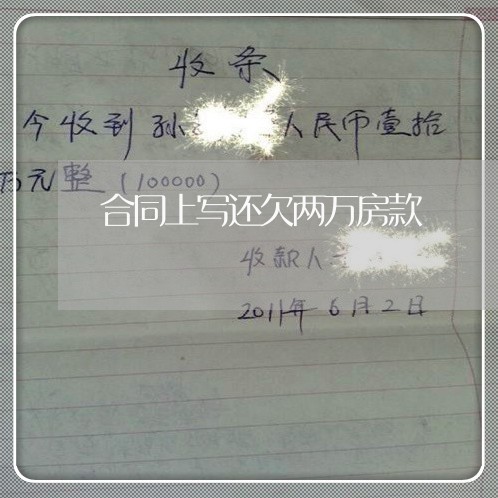 收条
今收到孙 人民币壹拾
万元整（100000）
合同上写还欠两万房款
收款人
2011年6月2日